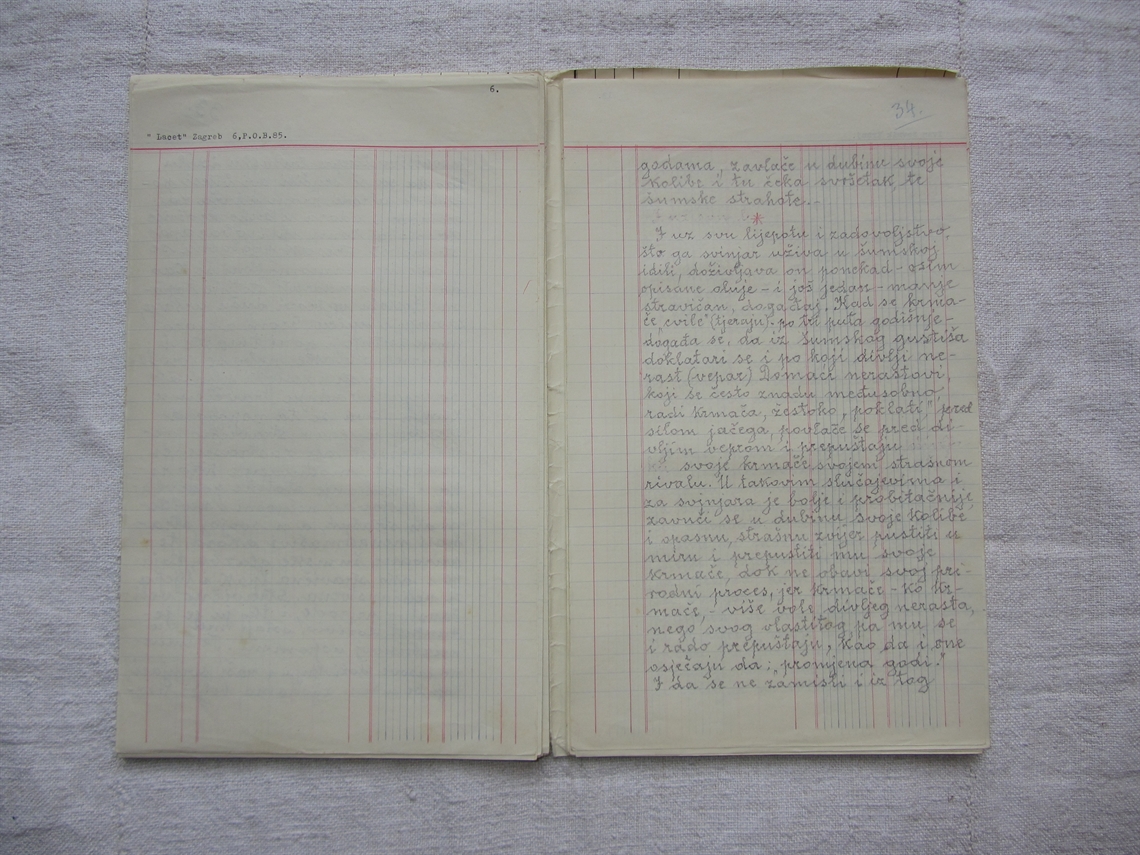 6.
" Lacet" Zagreb 6,P.O.B.85.
34.
godama„ zavlače u dubinu svoje
kolibe i tu čeka svršetak te
šumske strahote.-
*
I uz svu lijepotu i zadovoljstvo,
što ga svinjar uživa u šumskoj
idili, doživljava on ponekad - osim
opisane oluje - i još jedan - manje
stravičan, događaj. Kad se krma-
če „cvile" (tjeraju)- po tri puta godišnje -
događa se, da iz šumskog guštiša
doklatari se i po koji divlji ne-
rast (vepar) Domaći nerastovi,
koji se često znadu međusobno,
radi krmača, žestoko „poklati", pred
silom jačega, povlače se pred di-
vljim veprom i prepuštaju
svoje krmače svojem strasnom
rivalu. U takovim slučajevima i
za svinjara je bolje i probitačnije,
zavući se u dubinu svoje kolibe
i opasnu, strašnu zvijer pustiti u
miru i prepustiti mu svoje
krmače, dok ne obavi svoj pri-
rodni proces, jer krmače - ko kr-
mače, - više vole divljeg nerasta,
nego svog vlastitog pa mu se
i rado prepuštaju, kao da i one
osjećaju da: „promjena godi."
I da se ne zamisli i iz tog